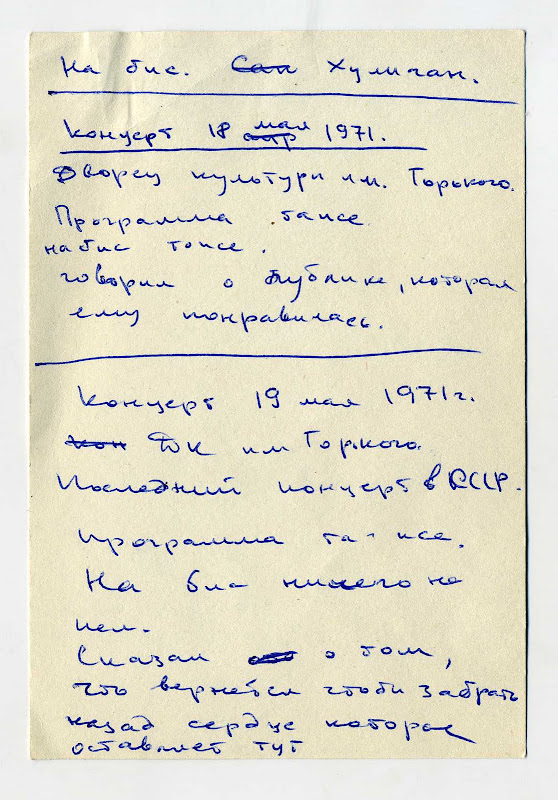 На бис. Сап Хулиган.
Концерт 18 мая 1971.
Дворец культури им. Горького.
Программа таже
на бис тоже.
говорил о публике, которая
ему понравилась.
Концерт 19 мая 1971 г.
кон ДК им Горького
Последний концерт в СССР.
Программа та-же.
На бис ничего не
пел.
Сказал о том,
что вернётся чтоби забрать
назад сердце которое
оставляет тут